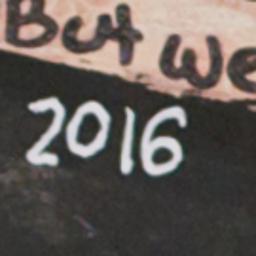 But we
2016